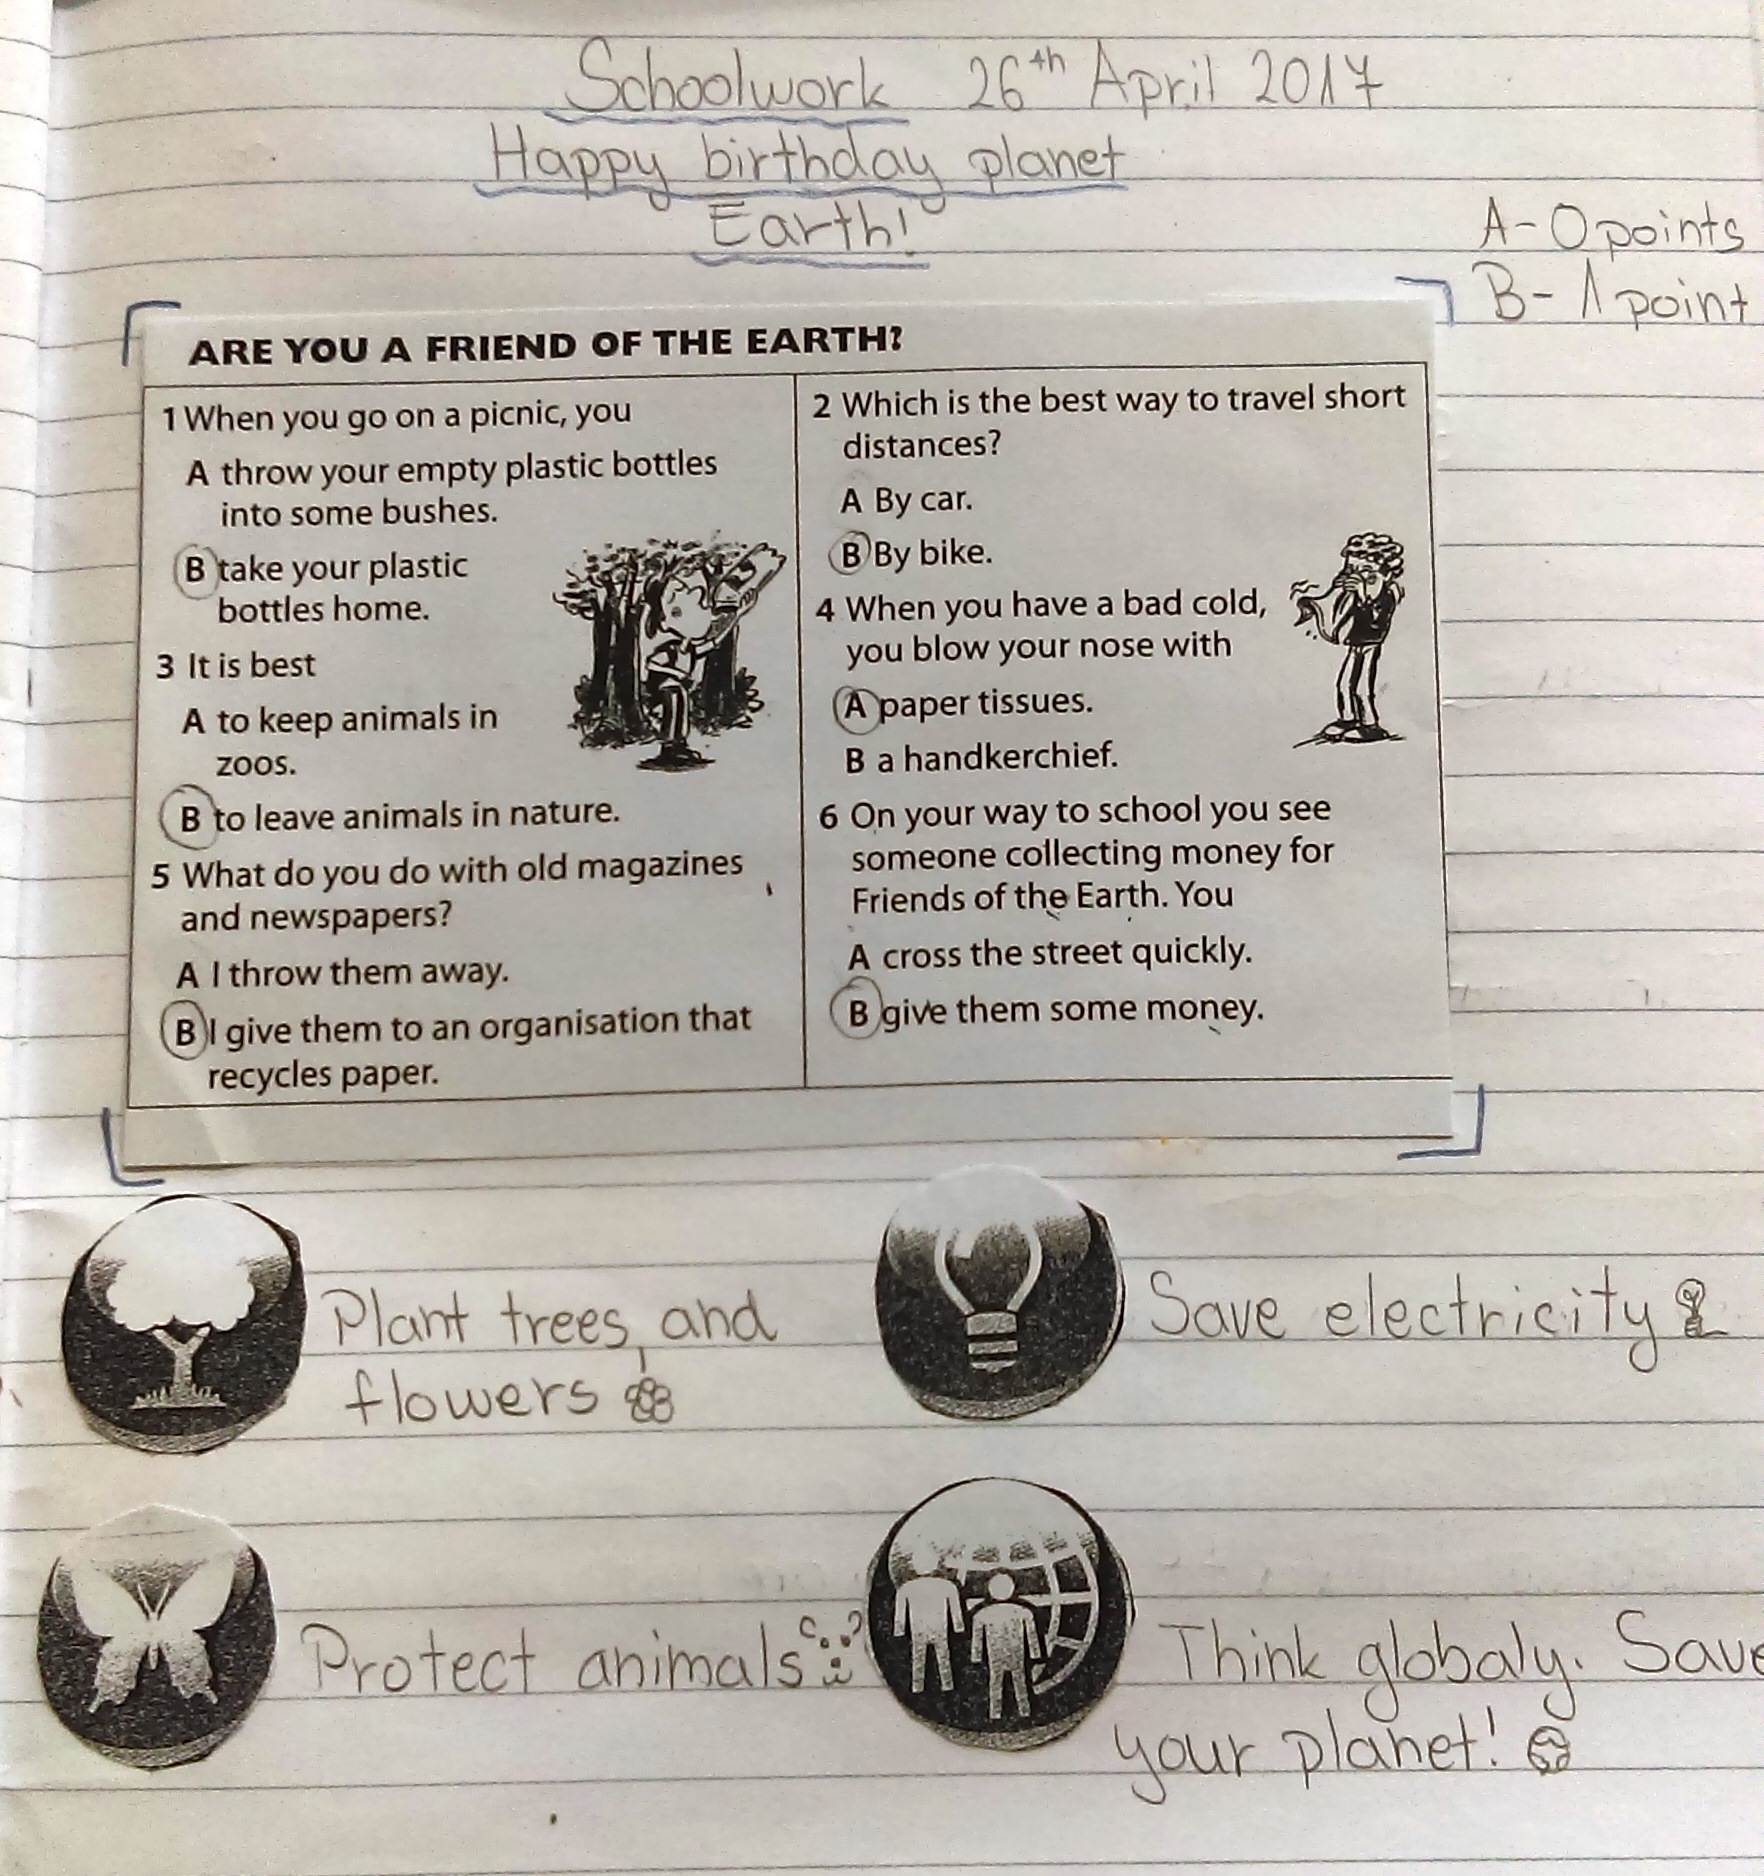 Schoolwork 26th April 2017
Happy birthday planet
Earth!
A - 0 points
B - 1 point
ARE YOU A FRIEND OF THE EARTH?
1 When you go on a picnic, you
A throw your empty plastic bottles
into some bushes.
B take your plastic
bottles home.
2 Which is the best way to travel short
distances?
A By car.
B By bike.
3 It is best
A to keep animals in
zoos.
B to leave animals in nature.
4 When you have a bad cold,
you blow your nose with
A paper tissues.
B a handkerchief.
5 What do you do with old magazines
and newspapers?
A I throw them away.
B I give them to an organisation that
recycles paper.
6 On your way to school you see
someone collecting money for
Friends of the Earth. You
A cross the street quickly.
B give them some money.
Plant trees and
flowers
Save electricity
Protect animals
Think globaly. Save
your planet!